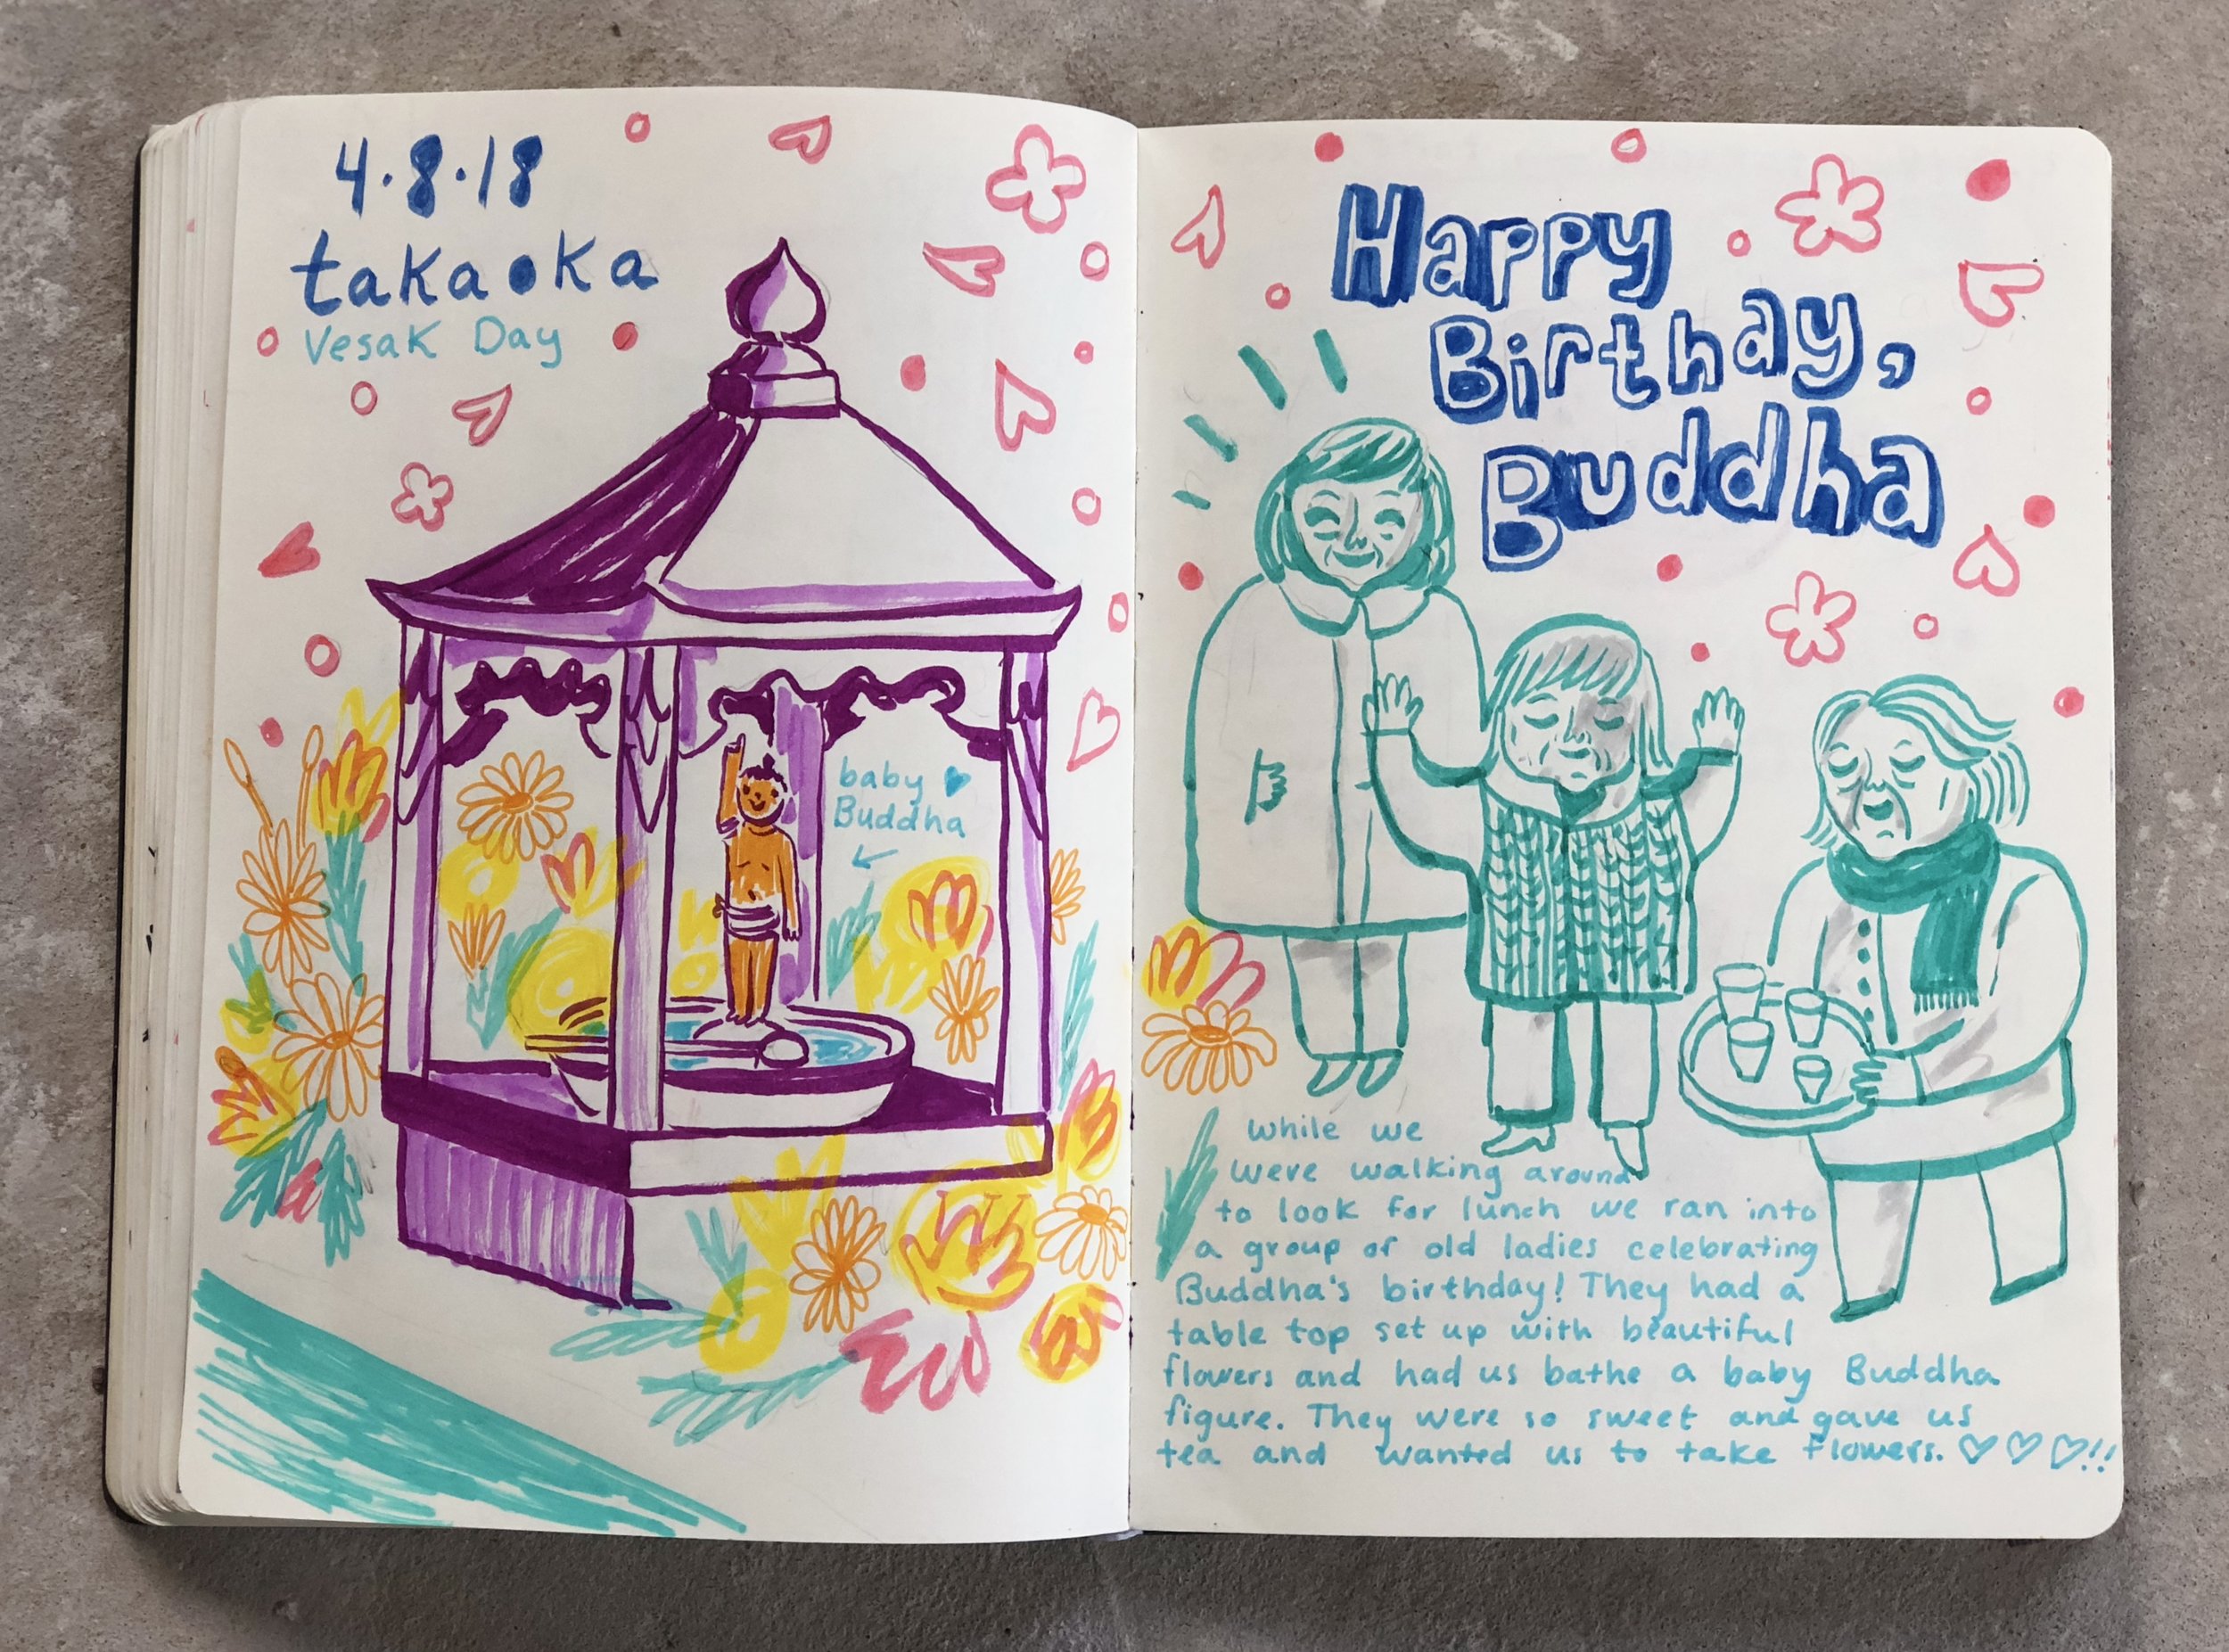 4.8.18
takaoka
Vesak Day
baby
Buddha
Happy
Birthday,
Buddha
While we
were walking around
to look for lunch we ran into
a group of old ladies celebrating
Buddha's birthday! They had a
table top set up with beautiful
flowers and had us bathe a baby Buddha
figure. They were so sweet and gave us
tea and wanted us to take flowers. ♡♡♡!!